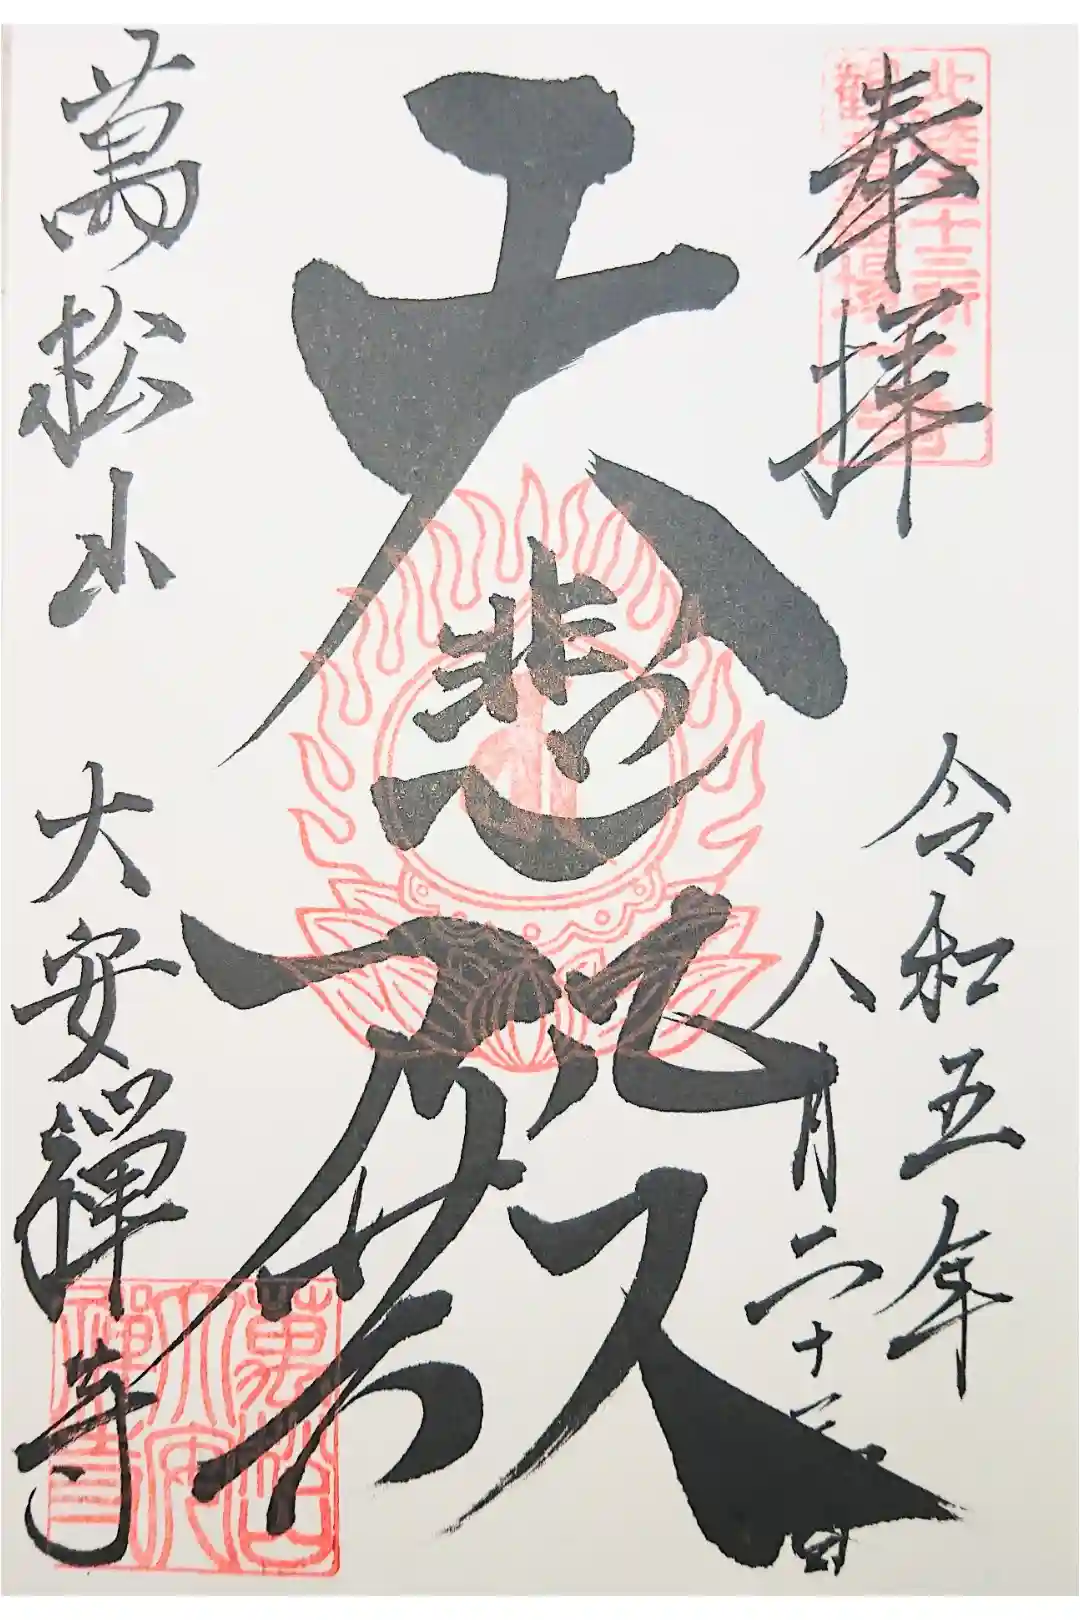 奉拝
北陸三十三所
觀音霊場
令和五年
八月二十三日
大悲殿
萬松山
大安禪寺
萬松山
大安
禪寺